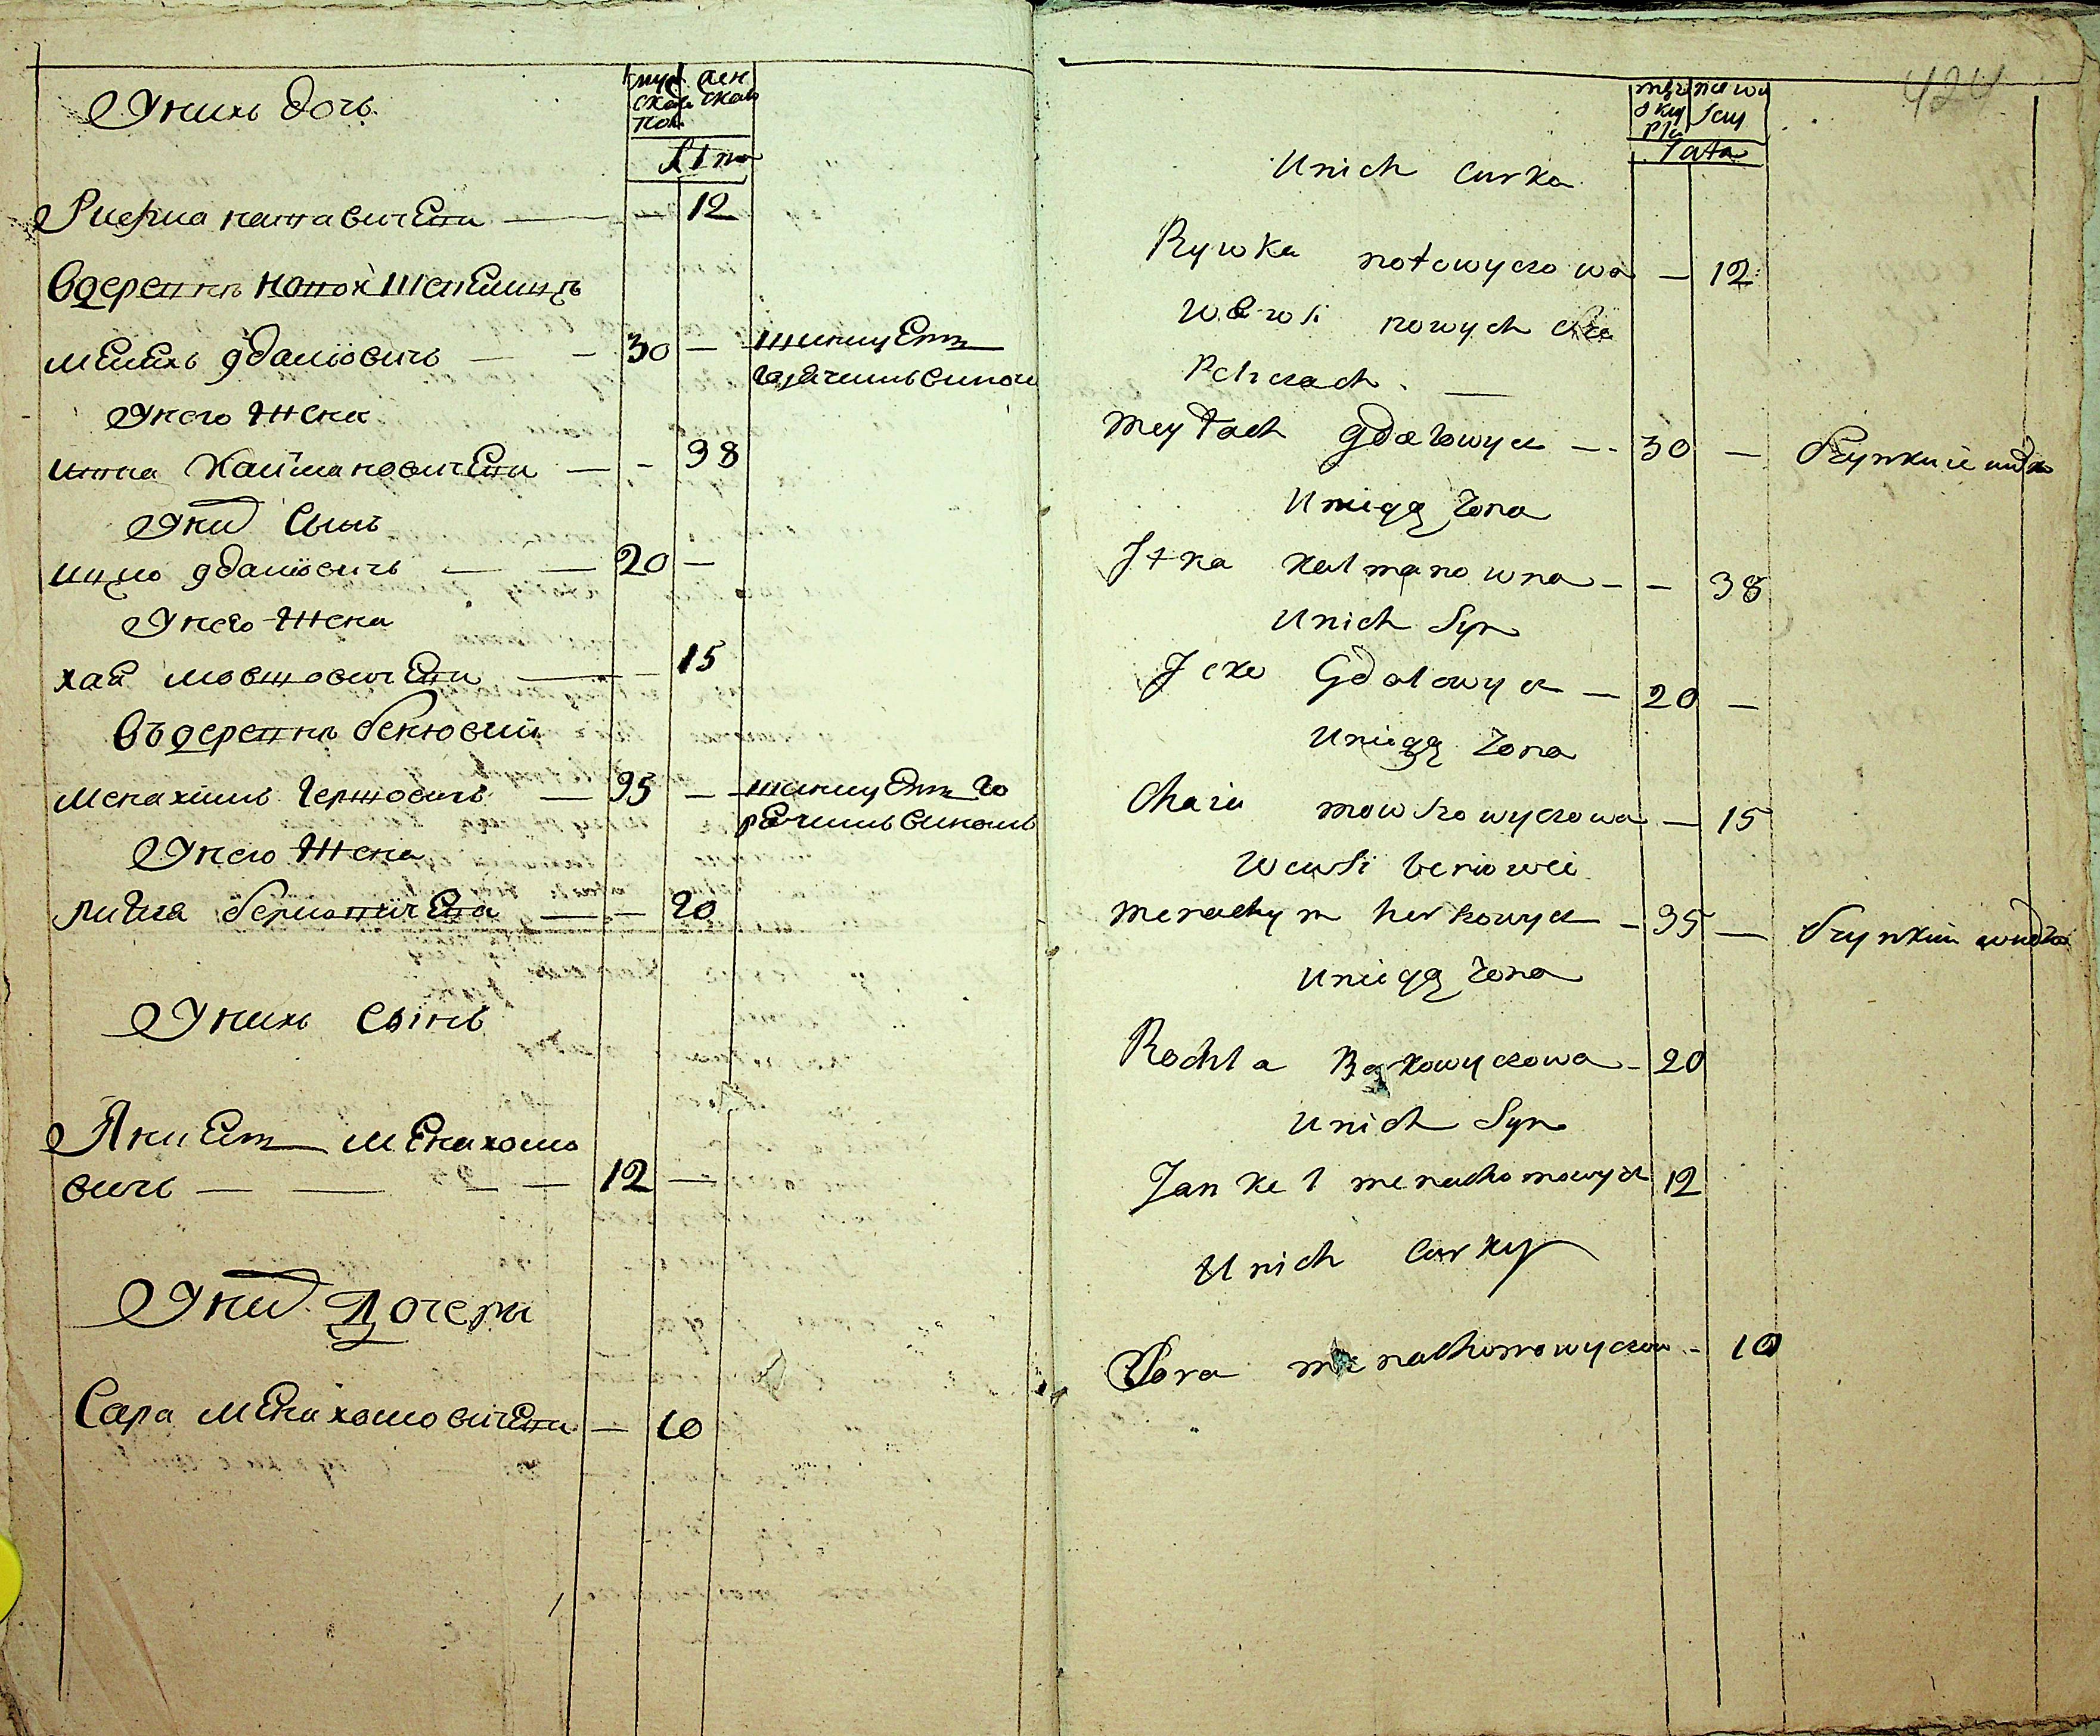 У нихъ дочь
муж
ской
пол
жен
ской
лѣта
Ривка натавичева — — 12
Въ деревнѣ новой
мейлехъ гдалювичь — — 30 — шинкуетъ
горячимъ виномъ
У него жена
итка калмановичева — — 38
У них Сынъ
ицко гдалювичь — — 20 —
У него жена
хая мовшовичева — — 15
Въ деревнѣ бенювки
Менахимъ Гершовичъ — 35 — шинкуетъ го
рячимъ виномъ
У него жена
берковичева — — 20
У нихъ сынъ
Янкель Менахомо
вичь — — — — 12 —
У них Дочери
Сара Менахомовичева — 10
424
męz
skey
płci
niewi
scey
Lata
Unich Curka
Rywka notowyczowa — 12
We wsi nowych
Meyłach gdalowycz — 30 — Szynkuie wudko
Uniegą Zona
Itka kalmanowna — — 38
Unich Syn
Icko Gdalowycz — 20 —
Uniegą Zona
Chaia mowszowyczowa — 15
We wsi beniowci
Menachym herszowycz — 35 — Szynkuie wudko
Uniegą Zona
Rochla Berkowyczowa — 20
Unich Syn
Jankel menachomowycz 12
Unich Curky
Sora menachomowyczowa — 10